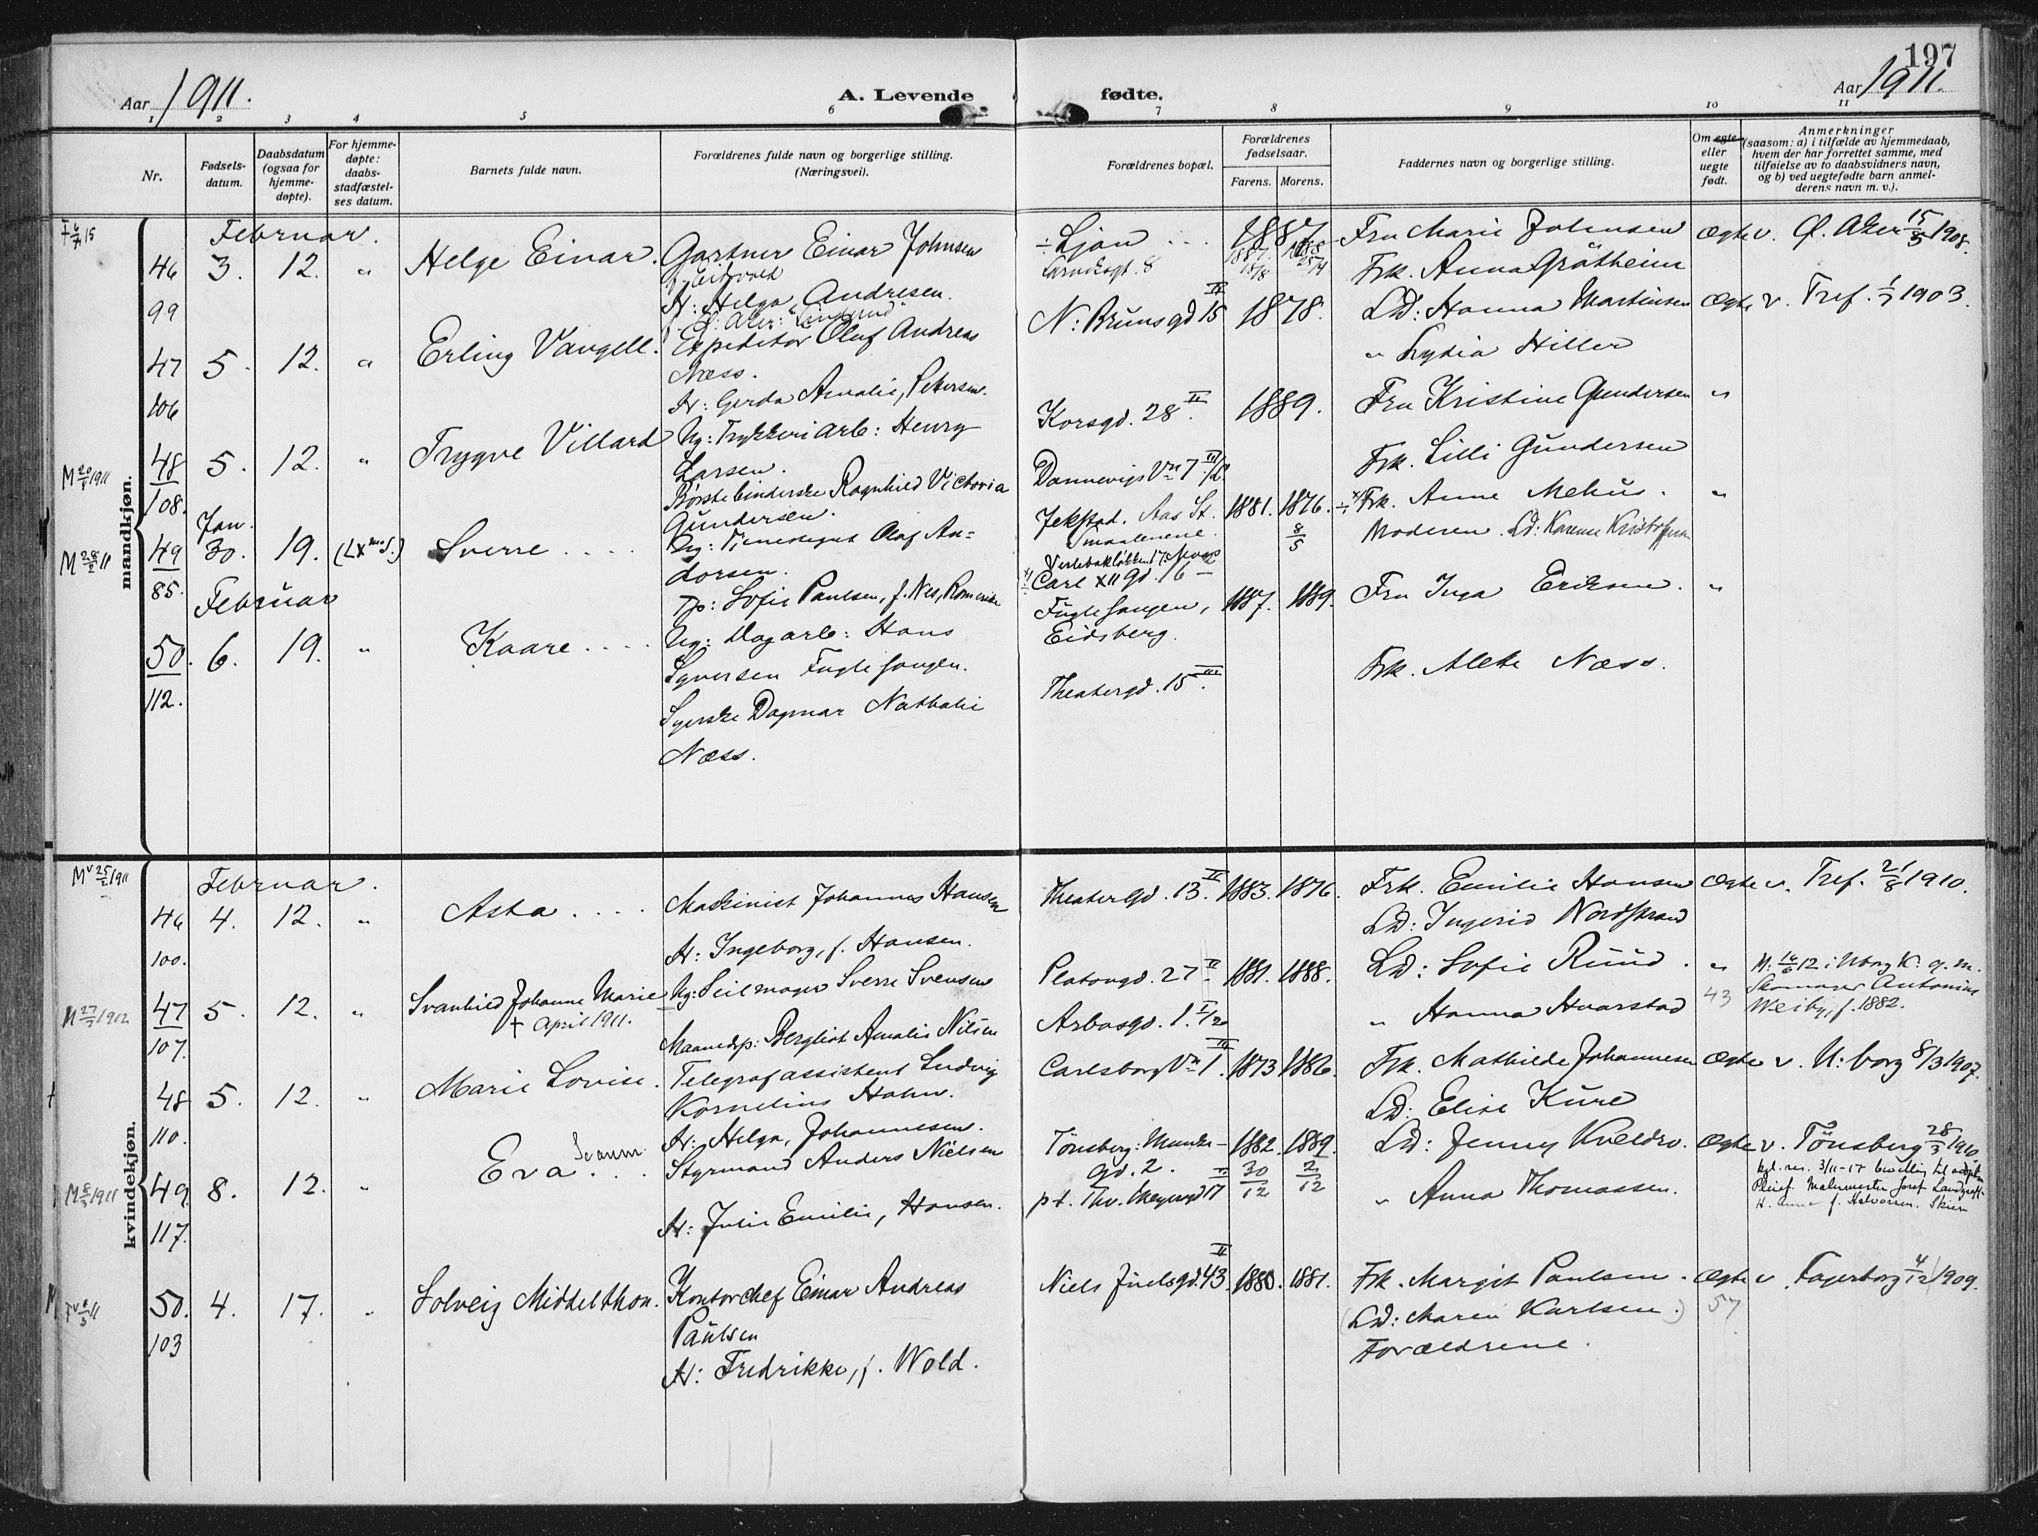 197
Aar 1911.
A. Levende fødte.
Aar 1911.
1 2 3 4 5 6 7 8 9 10 11
Nr.
Fødsels-
datum.
Daabsdatum
(ogsaa for
hjemme-
døpte).
For hjemme-
døpte:
daabs-
stadfæstel-
ses datum.
Barnets fulde navn.
Forældrenes fulde navn og borgerlige stilling.
(Næringsvei).
Forældrenes bopæl.
Forældrenes
fødselsaar.
Farens. Morens.
Faddernes navn og borgerlige stilling.
Om egte-
eller
uegte
født.
Anmerkninger
(saasom: a) i tilfælde av hjemmedaab,
hvem der har forrettet samme, med
tilføielse av to daabsvidners navn,
og b) ved uegtefødte barn anmel-
derens navn m. v.).
mandkjøn.
Februar.
46 3. 12. " Helge Einar. Gartner Einar Johnsen
99
H: Helga, Andresen.
÷ Ljan ... 1887
Fru Marie Johnsen
Frk. Anna Gråtheim
Ægte v. Ø. Aker 15/3 1908.
47 5. 12. " Erling Vangell. Expeditør Oluf Andreas
Næss.
106
H: Gerda Amalie, Petersen.
N: Brunsgd 15 IV 1878.
LD: Hanna Martinsen
" Lydia Hiller
Ægte v. Tref. 1/7 1903.
M 20/5 1911
48 5. 12. " Trygve Villard Ug: Trykkeriarb: Henry
Larsen.
108.
Børstebinderske Ragnhild Victoria
Gundersen.
Korsgd. 28 II. 1889.
Dannevigsvn 7 III
Fru Kristine Gundersen "
Frk. Lilli Gundersen
M 28/2 11
Jan.
49 30. 19. Sverre .... Ug: Tjenestegut Olaf An-
dorsen.
85.
Sofie Paulsen, f. Nes, Romerike
Jekstad. Aas St. 1881. 1876. 8/5
Smaalenene
Carl XII Gd. 16
÷ Frk. Anne Mehus. "
Moderen. LD: Karense Kristoffersen
Februar
50. 6. 19. " Kaare .... Ug: Dagarb: Hans
Syversen Fuglesangen.
112.
Syerske Dagmar Nathalie
Næss.
Fuglesangen, 1887. 1889.
Eidsberg.
Theatergd. 15 III.
Fru Inga Eriksen. "
Frk. Aleke Næss.
kvindekjøn.
Mv 25/2 1911
Februar.
46 4. 12. " Asta .... Maskinist Johannes Hansen
100.
H: Ingeborg, f. Hansen.
TheaterGd. 13. II 1883. 1876.
Frk. Emilie Hansen
LD: Ingerid Nordstrand
Ægte v. Tref. 21/8 1910.
M 27/7 1912
47 5. 12. " Svanhild Johanne Marie Ug: Seilmager Sverre Svensen
† April 1911.
107.
Maanedsp: Bergliot Amalie Nilsen
Platougd. 27 II 1881. 1888.
Arbosgd. 1.
LD: Sofie Ruud. "
" Hanna Hvarstad 43
M. 16/6 12 i Uborg K. g. m.
Skomager Antonius
Weiby, f. 1882.
48 5. 12. " Marie Lovise. Telegrafassistent Ludvig
Kornelius Hahn.
110.
H: Helga, Johannesen.
Carlsborgvn 1. 1873 1886.
Frk. Mathilde Johannesen
LD: Elise Kure
Ægte v. U: borg 8/3 1907.
M 8/3 1911
49. 8. 12. " Eva ... Styrmand Anders Nielsen
117.
H: Julie Emilie, Hansen.
Tønsberg: Munke- 1882. 1889.
gd. 2. 30/12 2/12
pt. Thv. Meyersgd 17
LD: Jenny Kveldro.
" Anna Thomassen.
Ægte v. Tønsberg 28/3 1910
kgl. res. 3/11-17 bevilling til adoption
Pleief. Malermester Josef Landgraff
H. Anna f. Halvorsen. Skien
50. 4. 17. " Solveig Middelthon. Kontorchef Einar Andreas
Paulsen
103
H: Fredrikke, f. Wold.
Niels Juelsgd. 43 II. 1880. 1881.
Frk. Margit Paulsen.
(LD: Maren Karlsen.)
Forældrene.
Ægte v. Fagerborg 4/12 1909.
57